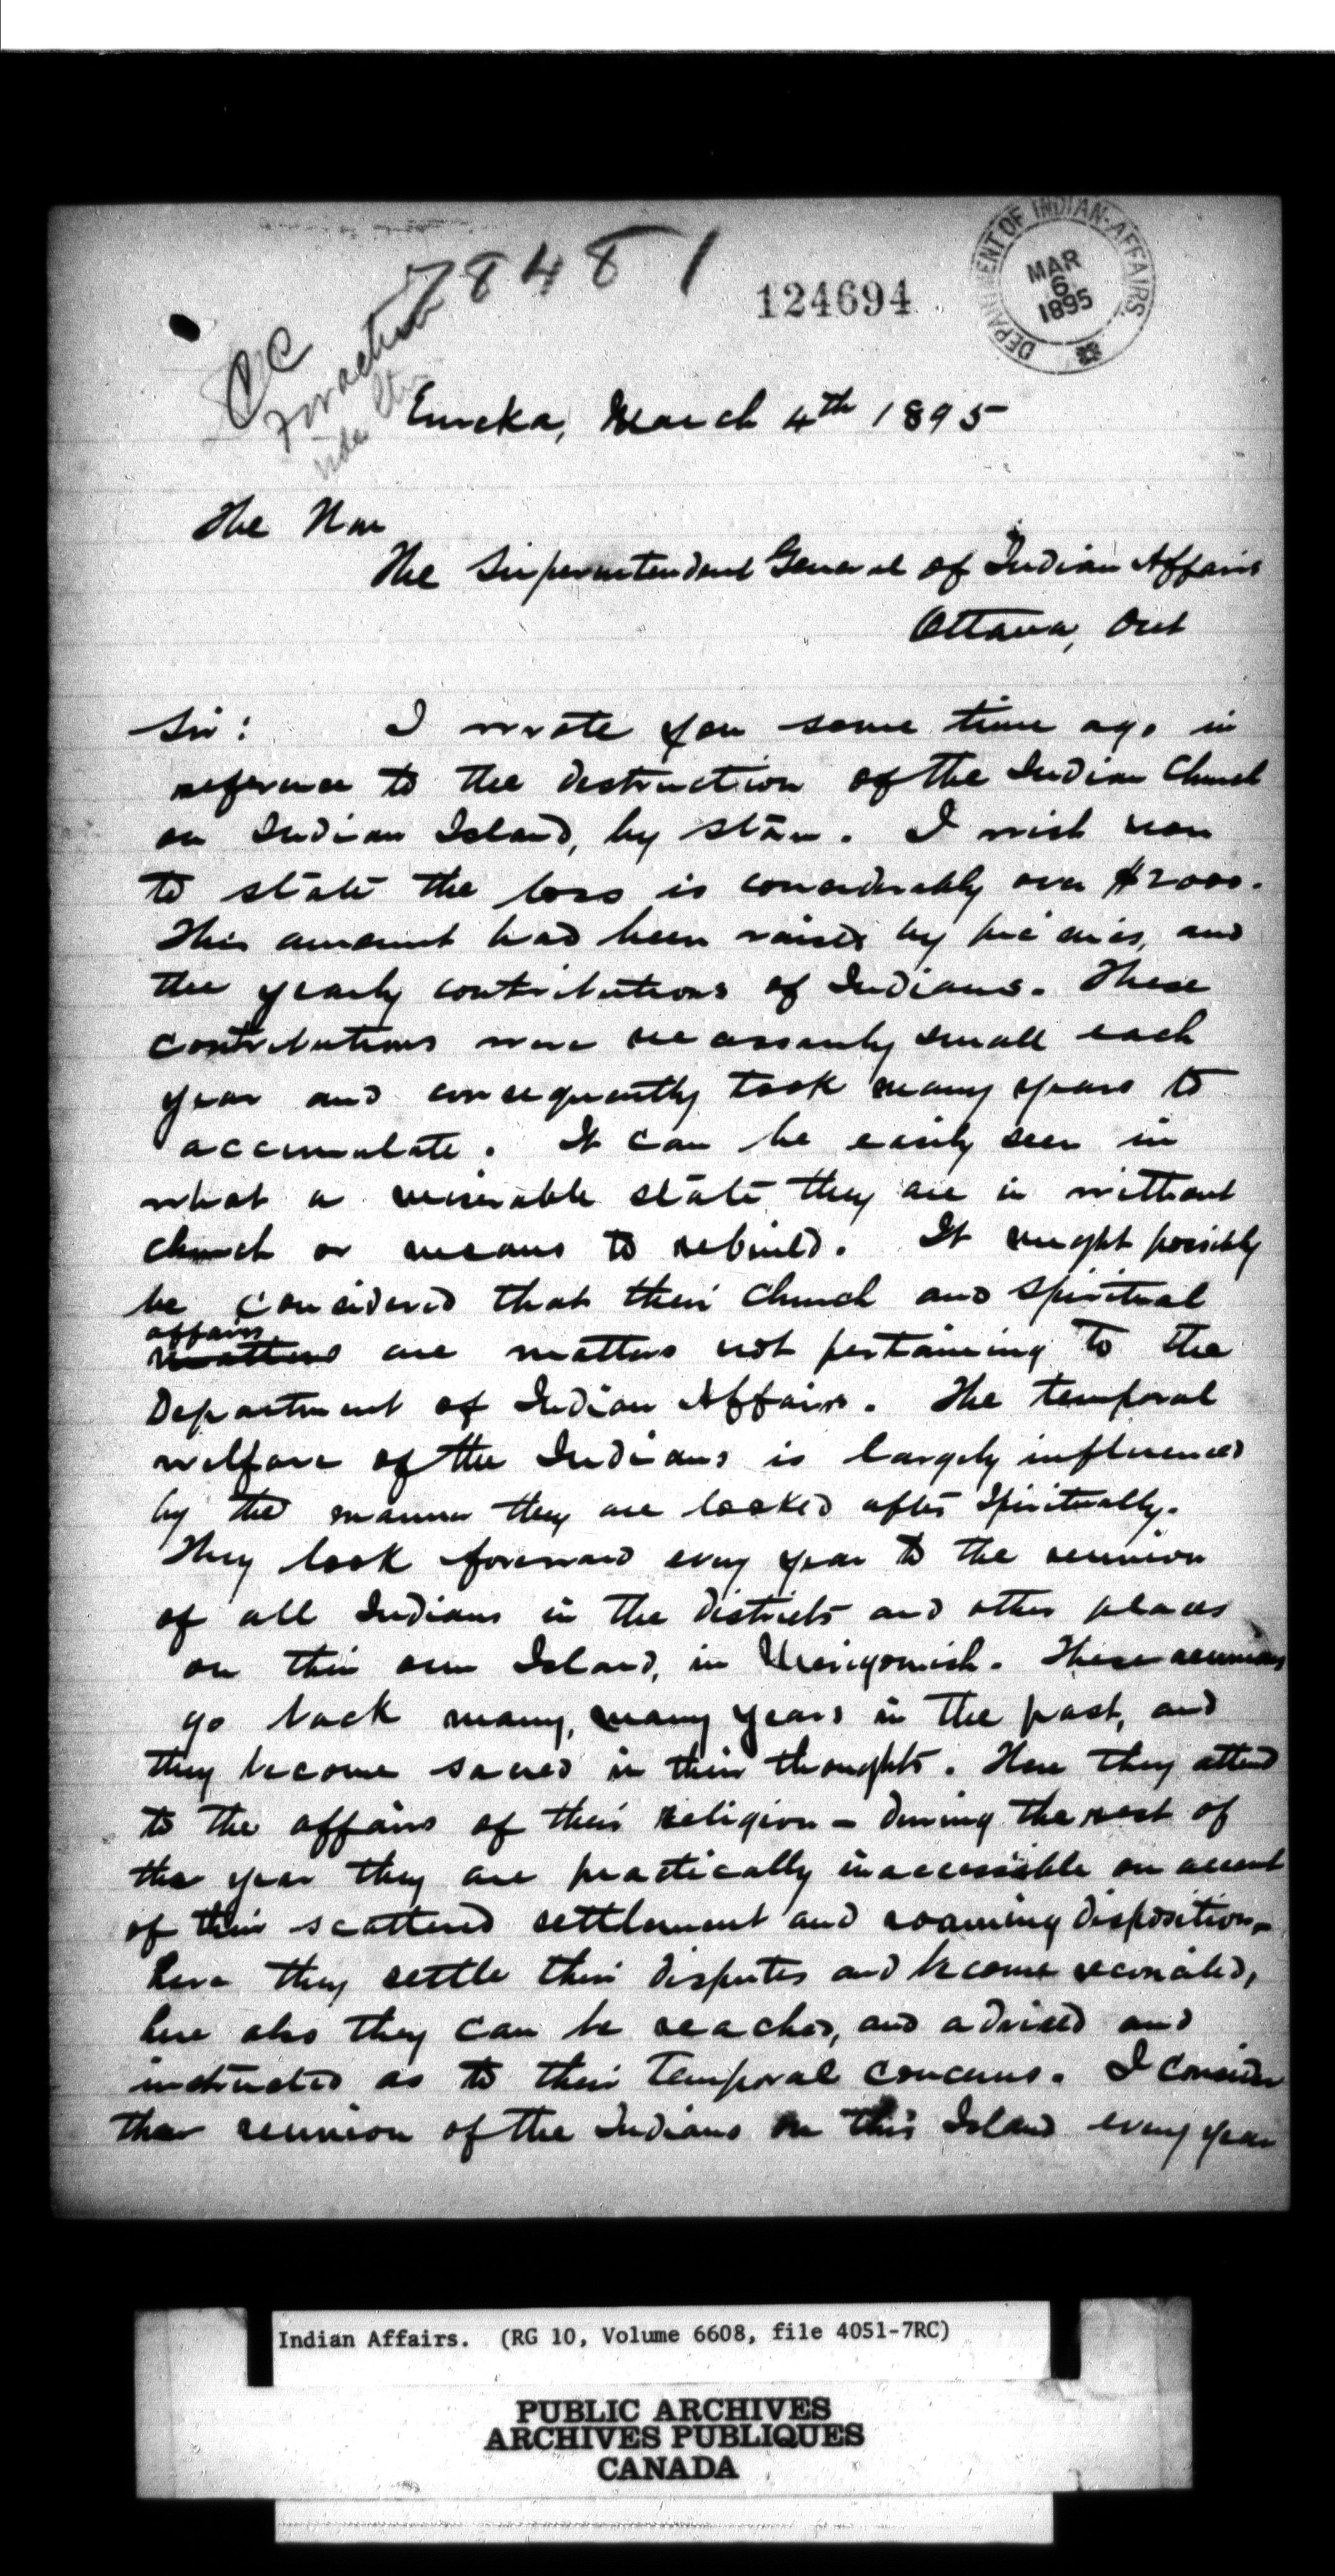 DEPARTMENT OF INDIAN AFFAIRS.
MAR
6
1895
78481
124694
CC
For action
Eureka, March 4th 1895
The Hon
The Superintendent General of Indian Affairs
Ottawa, Ont
Sir: I wrote you some time ago in
reference to the destruction of the Indian Church
on Indian Island, by storm. I wish now
to state the loss is considerably over $2000.
This amount had been raised by pic nics, and
the yearly contributions of Indians. These
contributions were necessarily small each
year and consequently took many years to
accumulate. It can be easily seen in
what a miserable state they are in without
church or means to rebuild. It might possibly
be considered that their Church and Spiritual
affairs
matters are matters not pertaining to the
Department of Indian Affairs. The temporal
welfare of the Indians is largely influenced
by the manner they are looked after Spiritually.
They look forward every year to the reunion
of all Indians in the districts and other places
on their own Island, in Merigomish. These reunions
go back many, many years in the past, and
they become sacred in their thoughts. Here they attend
to the affairs of their Religion - during the rest of
the year they are practically inaccessible on account
of their scattered settlement and roaming disposition -
here they settle their disputes and become reconciled,
here also they can be reached, and advised and
instructed as to their temporal concerns. I consider
the reunion of the Indians on this Island every year
Indian Affairs. (RG 10, Volume 6608, file 4051-7RC)
PUBLIC ARCHIVES
ARCHIVES PUBLIQUES
CANADA